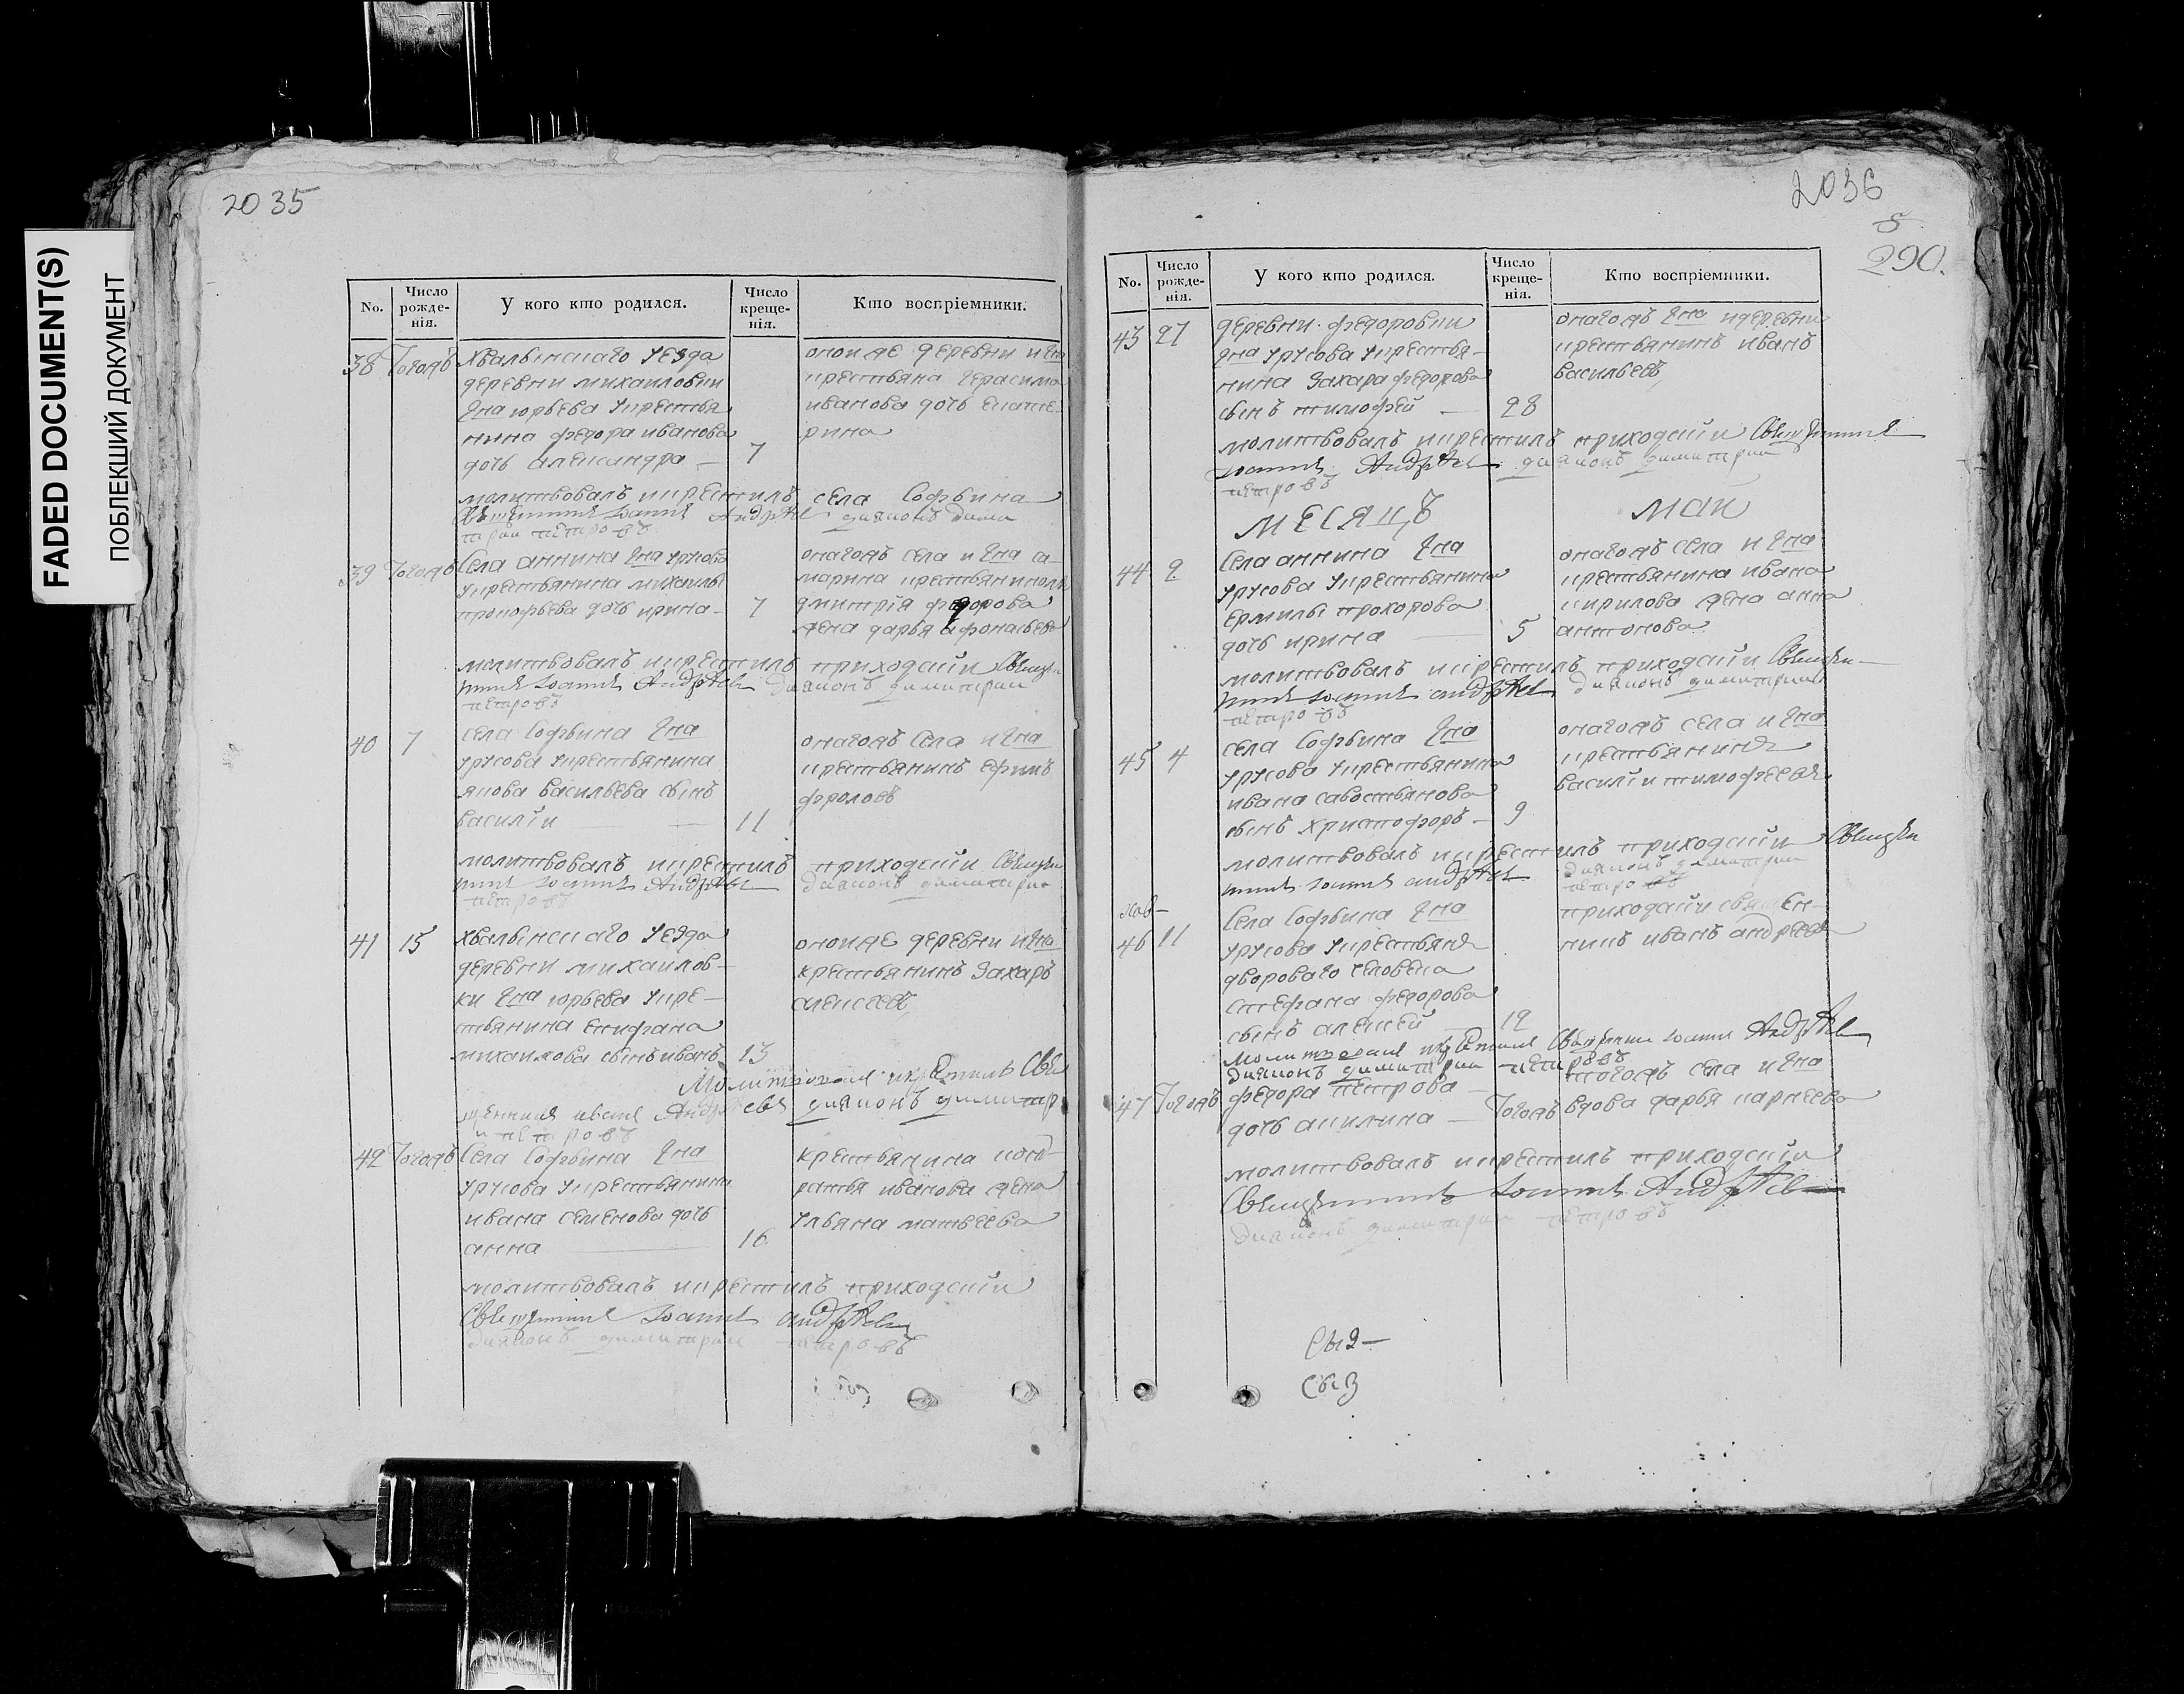 FADED DOCUMENT(S)
ПОБЛЕКШИЙ ДОКУМЕНТ
2035
No.
Число рожде- нія.
У кого кто родился.
Число креще- нія.
Кто воспріемники.
38 Тогожъ хвалынскаго уезда
деревни михаиловки
Гна юрьева укрестья
нина федора иванова
дочь александра — 7
оноиже деревни и Гна
крестьяна герасима
иванова дочь екате-
рина
молитвовалъ икрестилъ села Софьина
Священникъ Иоаннъ Андреевъ диаконъ дими
трии петровъ
39 Тогожъ Села аннина Гна урусова
укрестьянина михаилы
прокофьева дочь ирина - 7
оногожъ села и Гна са-
марина
дмитрія федорова
жена дарья афонасьева
молитвовалъ икрестилъ приходскіи Священ
никъ Иоаннъ Андреевъ диаконъ димитрии
петровъ
40 7 села Софьина Гна
урусова укрестьянина
якова васильева сынъ
василіи — 11
оногожъ Села и Гна
крестьянинъ ефимъ
фроловъ
молитвовалъ икрестилъ приходскіи Священ
никъ Иоаннъ Андреевъ диаконъ димитрии
петровъ
41 15 хвалынскаго уезда
деревни михаилов-
ки Гна юрьева укре-
стьянина епифана
михаилова сынъ иванъ 13
оноиже деревни и Гна
крестьянинъ Захаръ
алексеевъ
Молитвовалъ икрестилъ Свя
щенникъ иванъ Андреевъ диаконъ димитр
и петровъ
42 Тогожъ Села Софьина Гна
урусова укрестьянина
ивана семенова дочь
анна — 16
крестьянина конд
ратья иванова жена
ульяна матвеева
молитвовалъ икрестилъ приходскіи
Священникъ Иоаннъ андреевъ
диаконъ димитрии петровъ
2036
290.
No.
Число рожде- нія.
У кого кто родился.
Число креще- нія.
Кто воспріемники.
43 27 деревни федоровки
Гна урусова укрестья-
нина Захара федорова
сынъ тимофеи — 28
оногожъ Гна идеревни
крестьянинъ иванъ
васильевъ
молитвовалъ икрестилъ приходскіи Священникъ
Иоаннъ Андреевъ диаконъ димитрии
петровъ
МЕСЯЦЪ МАИ
44 2 Села аннина Гна
урусова укрестьянина
ермилы прохорова
дочь ирина — 5
оногожъ села и Гна
крестьянина ивана
кирилова жена анна
антонова
молитвовалъ икрестилъ приходскіи Священ-
никъ Иоаннъ андреевъ диаконъ димитрии
петровъ
45 4 села Софьина Гна
урусова укрестьянина
ивана савостьянова
сынъ христофоръ — 9
оногожъ села и Гна
крестьянинъ
василіи тимофеевъ
молитвовалъ икрестилъ приходскіи Священ
никъ Иоаннъ андреевъ диаконъ димитрии
петровъ
46 11 Села Софьина Гна
урусова укрестьянъ
двороваго человека
стефана федорова
сынъ алексеи — 12
приходскіи священ-
никъ иванъ андреевъ
Молитвовалъ икрестилъ Священникъ Иоаннъ Андреевъ
диаконъ димитрии петровъ
47 Тогожъ федора петрова
дочь акилина — Тогожъ
тогожъ села и Гна
вдова дарья карнеева
молитвовалъ икрестилъ приходскіи
Священникъ Иоаннъ Андреевъ
диаконъ димитрии петровъ